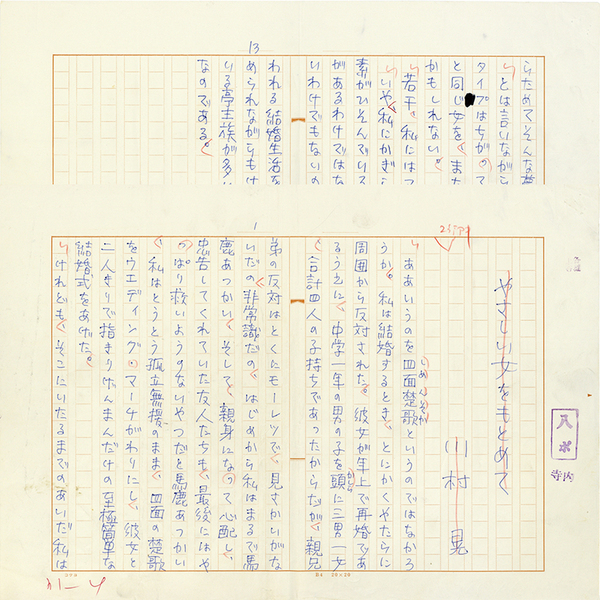 13
らためてそんな
とは言いながら
タイプはちがって
と同じ女を、また
かもしれない。
若干、私には
いや、私にかぎら
素がひそんでいる
があるわけではな
いわけでもないの
われる結婚生活を
められながらもけ
いる亭主族が多い
なのである。
1
23字下ゲ
やさしい女をもとめて
川村 晃
ああいうのを四面楚歌というのではなかろ
しめんそか
うか。私は結婚するとき、とにかくやたらに
周囲から反対された。彼女が年上で再婚であ
るうえに、中学一年の男の子を頭に三男一女
かしら
合計四人の子持ちであったからだが、親兄
弟の反対はとくにモーレツで、見さかいがな
いだの、非常識だの、はじめから私はまるで馬
鹿あつかい、そして、親身になって心配し、
忠告してくれていた友人たちも、最後にはや
っぱり救いようのないやつだと馬鹿あつかい
私はとうとう孤立無援のまま、四面の楚歌
をウエディング・マーチがわりにし、彼女と
二人きりで指きりげんまんだけの至極簡単な
結婚式をあげた。
けれども、そこにいたるまでのあいだ私は
入ポ
寺内
B4 20×20